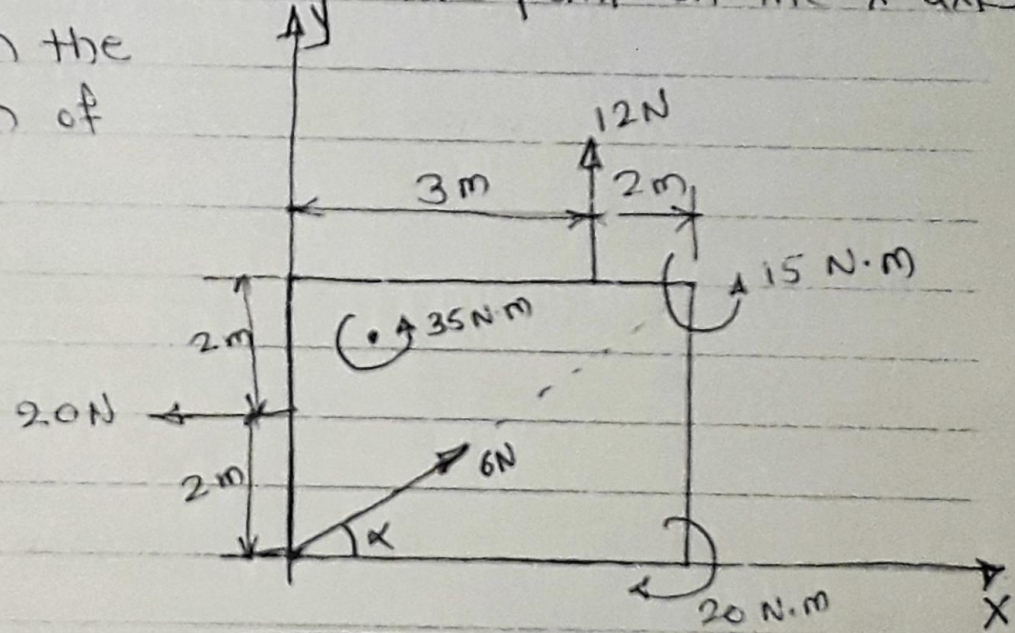 the
of
y
12N
3m
2m
15 N.m
35 N.m
2m
20N
6N
2m
α
20 N.m
X